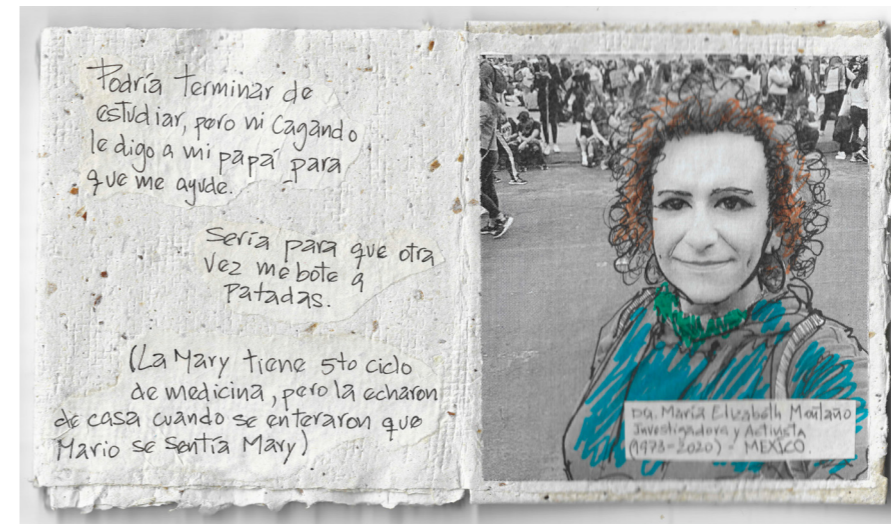 Podría terminar de
estudiar, pero ni cagando
le digo a mi papá para
que me ayude.
Sería para que otra
vez me bote a
patadas.
(La Mary tiene 5to ciclo
de medicina, pero la echaron
de casa cuando se enteraron que
Mario se sentía Mary)
Dra. María Elizabeth Montaño
Investigadora y Activista
(1973-2020) - MEXICO.